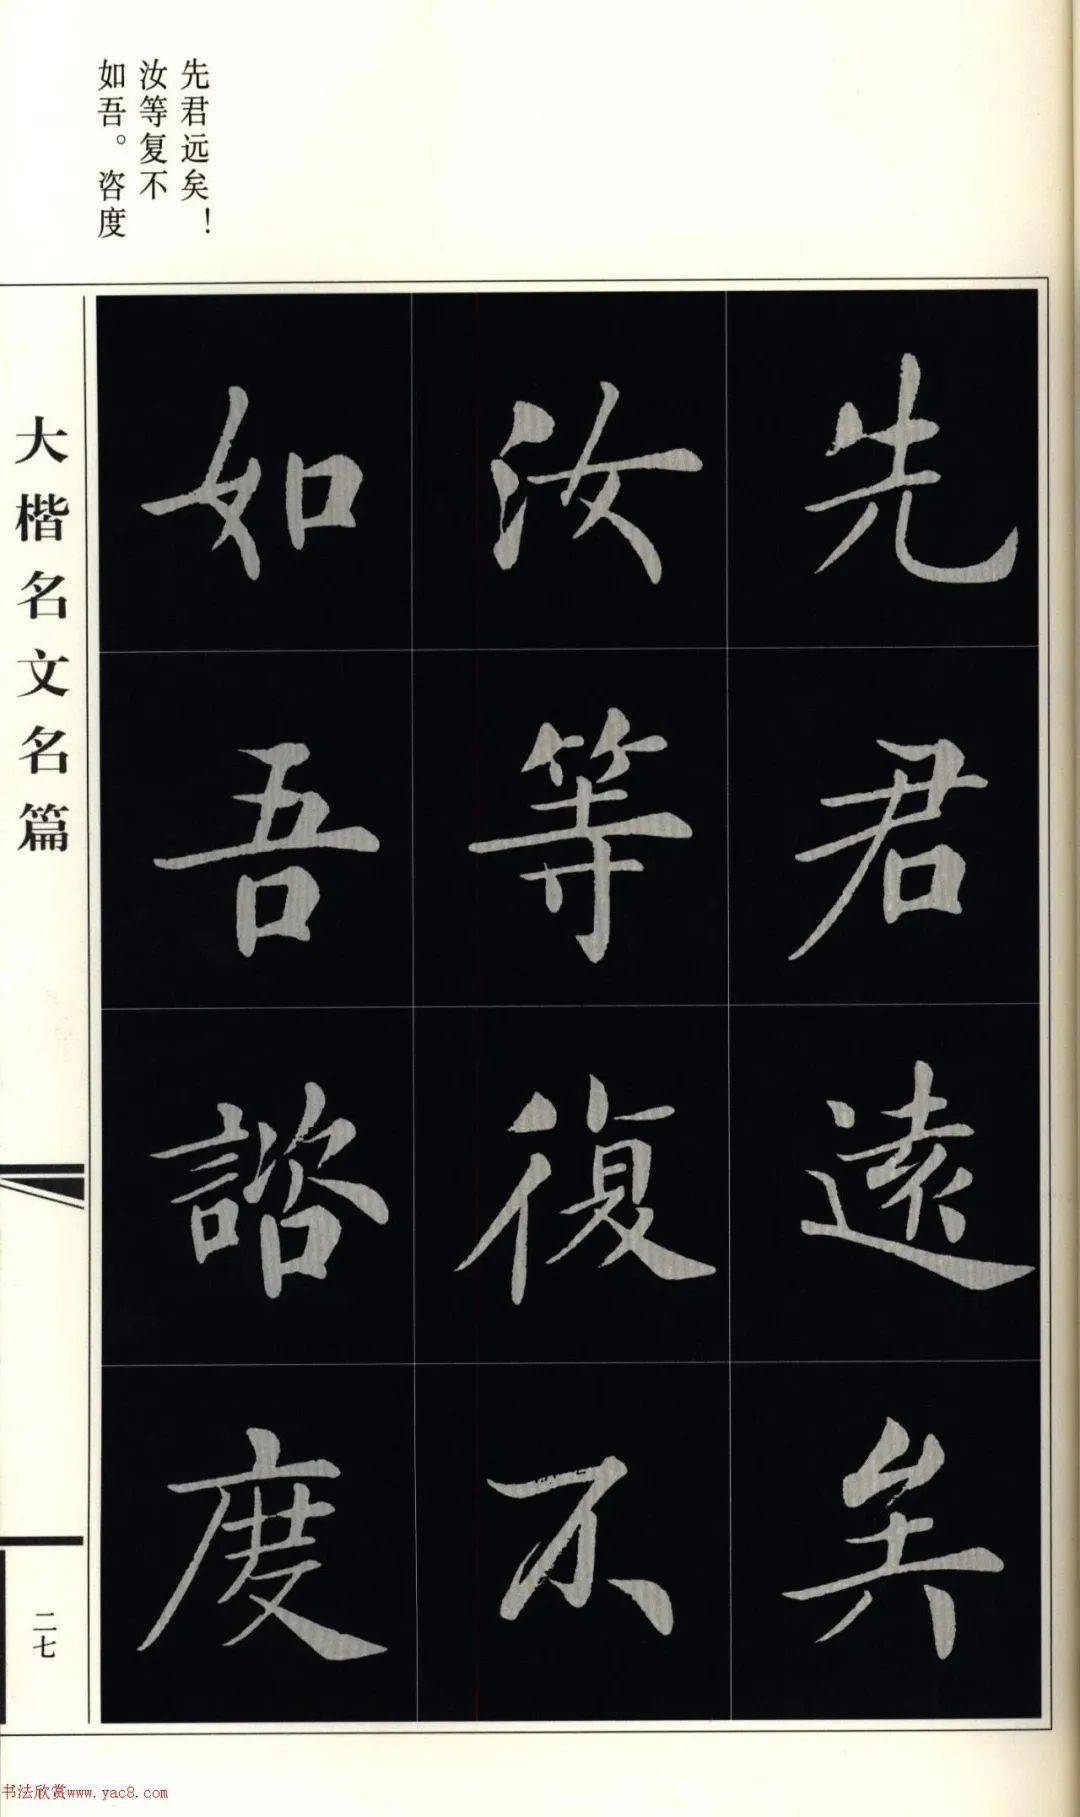 先君远矣！
汝等复不
如吾。咨度
先君遠矣
汝等復不
如吾諮度
大楷名文名篇
二七
书法欣赏www.yac8.com